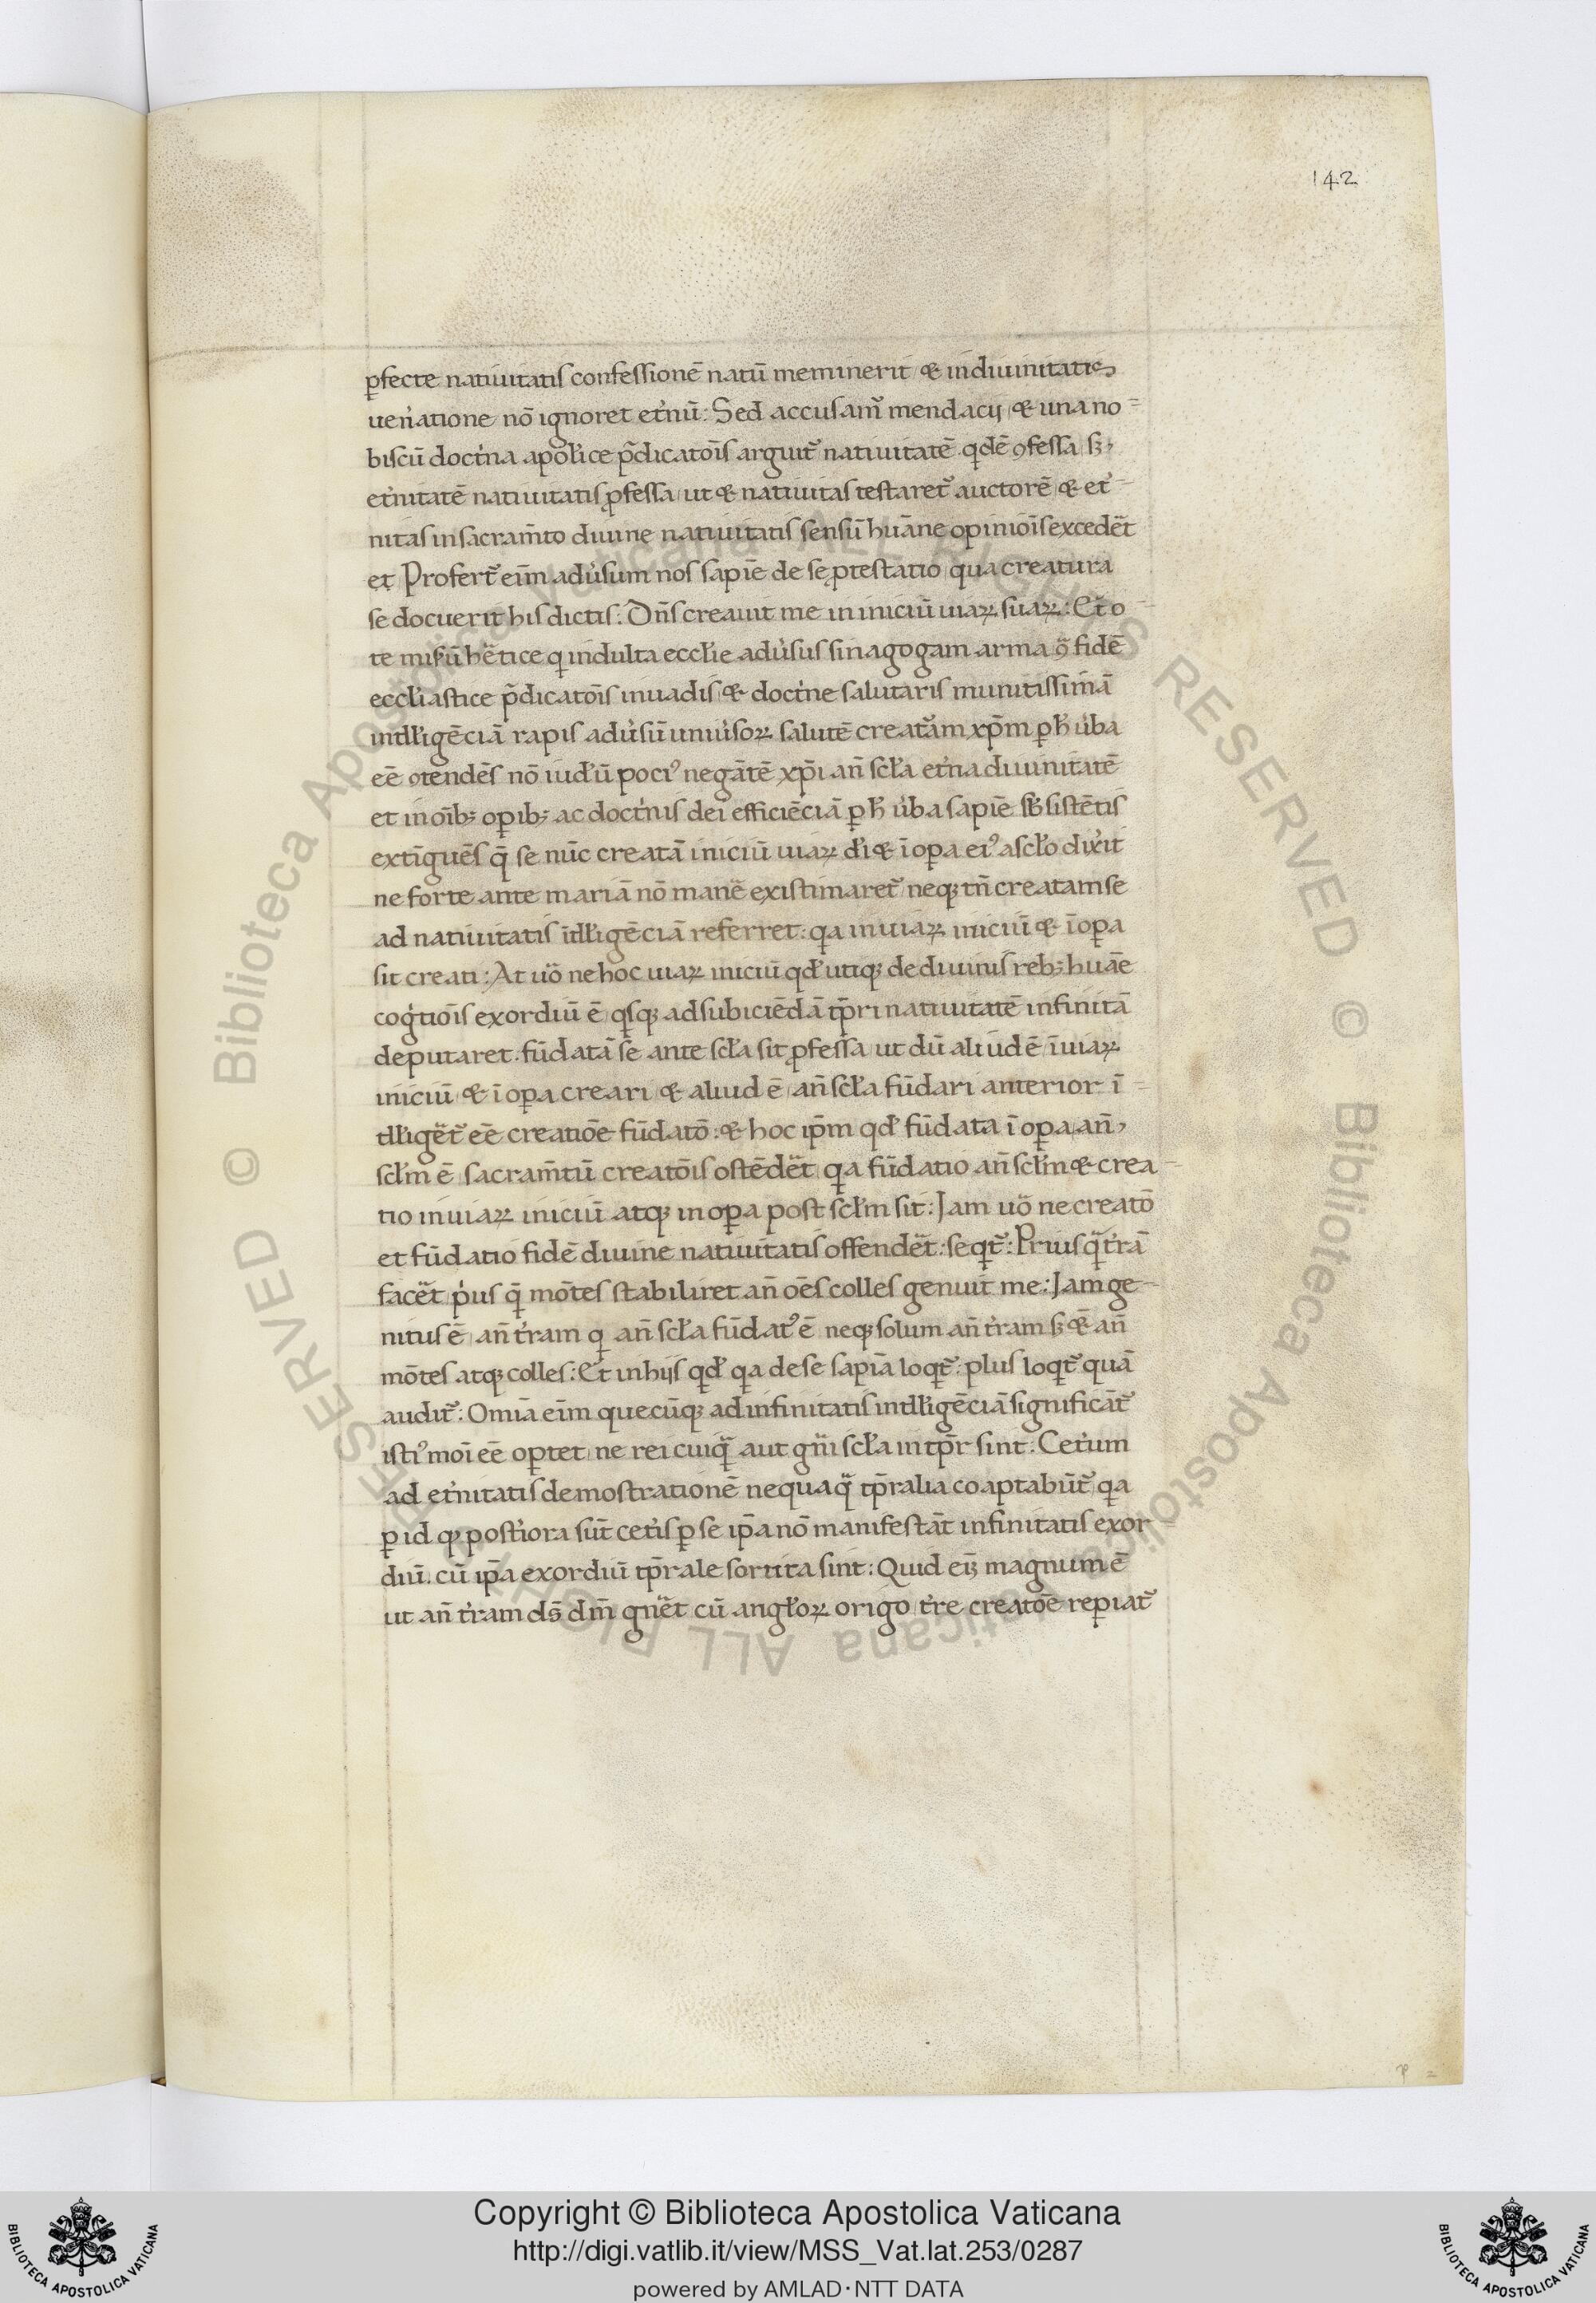 142
ꝑfecte natiuitatis confessionē natū meminerit & in diuinitatis
uen̾atione nō ignoret et̾nū: Sed accusam̃ mendacij & una no=
biscū doct̾na apolice p̄dicatōis arguit̃ natiuitatē qdē ꝯfessa sꝫ
et̾nitatē natiuitatis ꝓfessa ut & natiuitas testaret̃ auctorē & et̾
nitas in sacram̄to diuine natiuitatis sensū huāne opinioīs excedēt
et Profert̃ eīm adu̾sum nos sapiē de se ꝓtestatio qua creatura
se docuerit his dictis: Dn̄s creauit me in iniciū uiaꝝ suaꝝ: Et o
te mis̾ū h̾etice q indulta eccl̾ie adu̾sus sinagogam arma ꝯ̄ fidē
eccl̾iastice p̄dicatōis inuadis & doct̾ne salutaris munitissimā
intll̾igēciā rapis adu̾sū uniu̾soꝝ salutē creat̾am xp̄m ꝑ h̾ u̾ba
eē ꝯtendēs nō iud̾ū poci᾽ negātē xp̄i an̄ scl̾a et̾na diuinitatē
et in oīb; oꝑib; ac doct̾nis dei efficiēciā ꝑ h̾ u̾ba sapiē sb̾sistētis
extīguēs q̄ se nūc creatā iniciū uiaꝝ d̾i & ī oꝑa ei᾽ a scl̾o dix̾it
ne forte ante mariā nō manē existimaret̃ neqꝫ tn̄ creatam se
ad natiuitatis ītll̾igēciā referret: qa in uiaꝝ iniciū & ī oꝑa
sit creati: At uō ne hoc uiaꝝ iniciū qd̾ utiqꝫ de diuinis reb; huāe
cog̾tioīs exordiū ē qsqꝫ ad subiciēdā tp̄ri natiuitatē infinitā
deputaret. fūdatā se ante scl̾a sit ꝓfessa ut dū aliud ē ī uiaꝝ
iniciū & ī oꝑa creari & aliud ē an̄ scl̾a fūdari anterior ī=
tll̾igēt̃ eē creatiōe fūdatō: & hoc ip̄m qd̾ fūdata ī oꝑa an̄
scl̾m ē sacram̄tū creatōis ostēdēt qa fūdatio an̄ scl̾m & crea
tio in uiaꝝ iniciū atqꝫ in oꝑa post scl̾m sit: Jam uō ne creatō
et fūdatio fidē diuine natiuitatis offendēt: seqt̃: Prius q̄ t̾rā
facēt p̾us q̄ mōtes stabiliret an̄ oēs colles genuit me: Jam ge-
nitus ē an̄ t̾ram q an̄ scl̾a fūdat᾽ ē neqꝫ solum an̄ t̾ram sꝫ & an̄
mōtes atqꝫ colles: Et in hijs qd̾ qa de se sapiā loqt̃: plus loqt̃ quā
audit̃: Omīa eīm quecūqꝫ ad infinitatis intll̾igēciā significāt̃
isti᾽ moī eē oꝑtet ne rei cuiq̄ aut gn̄i scl̾a in tp̄r sint: Cet̾um
ad et̾nitatis demostrationē nequaq̄ tp̄ralia coaptabūt̃ qa
ꝑ id qꝫ post̾iora sūt cet̾is ꝑ se ip̄a nō manifestāt infinitatis exor
diū. cū ip̄a exordiū tp̄rale sortita sint: Quid eīꝫ magnum ē
ut an̄ t̾ram ds̄ dm̄ gn̄ēt cū angl̾oꝝ origo t̾re creatōe reꝑiat̃
Copyright © Biblioteca Apostolica Vaticana
http://digi.vatlib.it/view/MSS_Vat.lat.253/0287
powered by AMLAD·NTT DATA